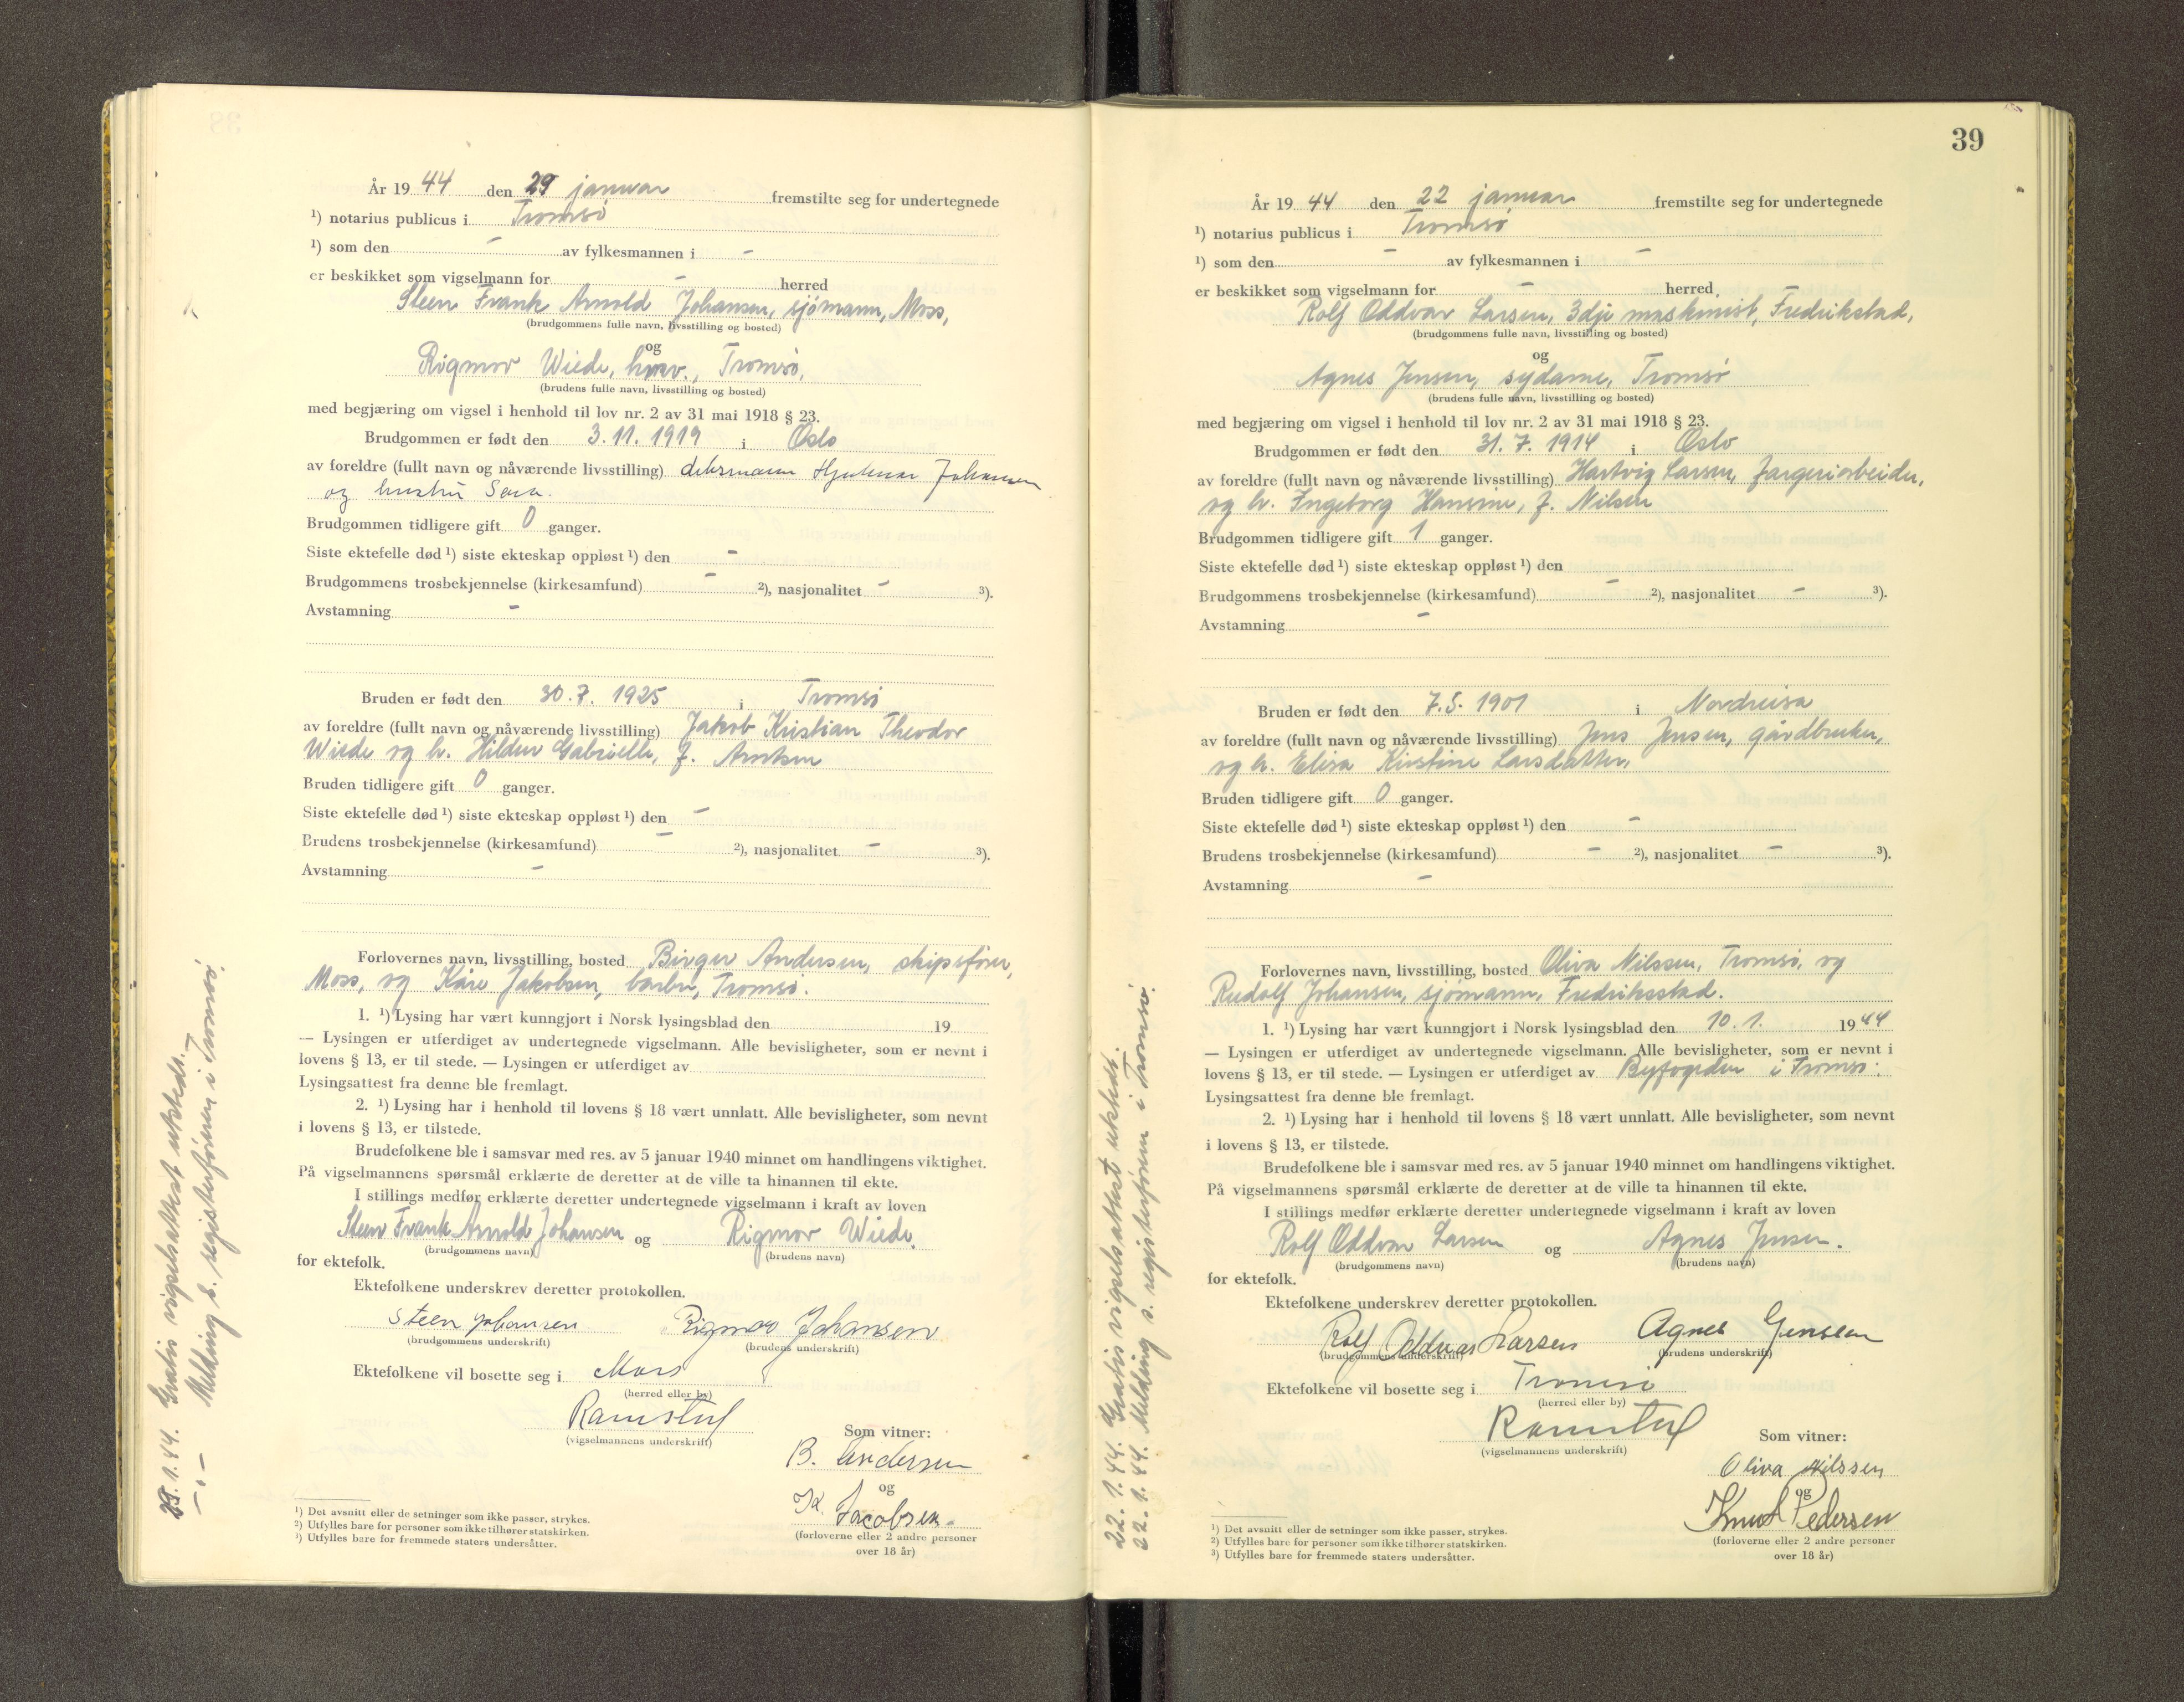 År 1944 den 29 januar fremstilte seg for undertegnede
¹) notarius publicus i Tromsø
¹) som den - av fylkesmannen i -
er beskikket som vigselmann for - herred
Steen Frank Arnold Johansen, sjømann, Moss,
(brudgommens fulle navn, livsstilling og bosted)
og
Rigmor Wiede, hmv., Tromsø,
(brudens fulle navn, livsstilling og bosted)
med begjæring om vigsel i henhold til lov nr. 2 av 31 mai 1918 § 23.
Brudgommen er født den 3.11.1919 i Oslo
av foreldre (fullt navn og nåværende livsstilling) Hjalmar Johansen
og hustru Sara.
Brudgommen tidligere gift 0 ganger.
Siste ektefelle død ¹) siste ekteskap oppløst ¹) den -
Brudgommens trosbekjennelse (kirkesamfund) - ²), nasjonalitet - ³).
Avstamning -
Bruden er født den 30.7.1925 i Tromsø
av foreldre (fullt navn og nåværende livsstilling) Jakob Kristian Theodor
Wiede og h. Hildur Gabrielle, f. Arntsen
Bruden tidligere gift 0 ganger.
Siste ektefelle død ¹) siste ekteskap oppløst ¹) den -
Brudens trosbekjennelse (kirkesamfund) - ²), nasjonalitet - ³).
Avstamning -
Forlovernes navn, livsstilling, bosted Birger Andersen, skipsfører,
Moss, og Kåre Jakobsen, barber, Tromsø.
1. ¹) Lysing har vært kunngjort i Norsk lysingsblad den 19
— Lysingen er utferdiget av undertegnede vigselmann. Alle bevisligheter, som er nevnt i
lovens § 13, er til stede. — Lysingen er utferdiget av
Lysingsattest fra denne ble fremlagt.
2. ¹) Lysing har i henhold til lovens § 18 vært unnlatt. Alle bevisligheter, som nevnt
i lovens § 13, er tilstede.
Brudefolkene ble i samsvar med res. av 5 januar 1940 minnet om handlingens viktighet.
På vigselmannens spørsmål erklærte de deretter at de ville ta hinannen til ekte.
I stillings medfør erklærte deretter undertegnede vigselmann i kraft av loven
Steen Frank Arnold Johansen og Rigmor Wiede
(brudgommens navn) (brudens navn)
for ektefolk.
Ektefolkene underskrev deretter protokollen.
Steen Johansen Rigmor Johansen
(brudgommens underskrift) (brudens underskrift)
Ektefolkene vil bosette seg i Moss
(herred eller by)
Ramstuf
(vigselmannens underskrift)
Som vitner:
B. Andersen
og
K. Jacobsen.
(forloverne eller 2 andre personer
over 18 år)
¹) Det avsnitt eller de setninger som ikke passer, strykes.
²) Utfylles bare for personer som ikke tilhører statskirken.
³) Utfylles bare for fremmede staters undersåtter.
29.1.44. Gratis vigselsattest utstedt.
-"- Melding s. registerføreren i Tromsø.
39
År 1944 den 22 januar fremstilte seg for undertegnede
¹) notarius publicus i Tromsø
¹) som den - av fylkesmannen i -
er beskikket som vigselmann for - herred
Rolf Oddvar Larsen, 3dje maskinist, Fredrikstad,
(brudgommens fulle navn, livsstilling og bosted)
og
Agnes Jensen, sydame, Tromsø
(brudens fulle navn, livsstilling og bosted)
med begjæring om vigsel i henhold til lov nr. 2 av 31 mai 1918 § 23.
Brudgommen er født den 31.7.1914 i Oslo
av foreldre (fullt navn og nåværende livsstilling) Hartvig Larsen, fargeriarbeider,
og h. Ingeborg Hansine, f. Nilsen
Brudgommen tidligere gift 1 ganger.
Siste ektefelle død ¹) siste ekteskap oppløst ¹) den
Brudgommens trosbekjennelse (kirkesamfund) - ²), nasjonalitet - ³).
Avstamning -
Bruden er født den 7.5.1901 i Nordreisa
av foreldre (fullt navn og nåværende livsstilling) Jens Jensen, gårdbruker,
og h. Elisa Kirstine Larsdatter,
Bruden tidligere gift 0 ganger.
Siste ektefelle død ¹) siste ekteskap oppløst ¹) den -
Brudens trosbekjennelse (kirkesamfund) - ²), nasjonalitet - ³).
Avstamning -
Forlovernes navn, livsstilling, bosted Oliva Nilssen, Tromsø, og
Rudolf Johansen, sjømann, Fredriksstad.
1. ¹) Lysing har vært kunngjort i Norsk lysingsblad den 10.1. 1944
— Lysingen er utferdiget av undertegnede vigselmann. Alle bevisligheter, som er nevnt i
lovens § 13, er til stede. — Lysingen er utferdiget av Byfogden i Tromsø.
Lysingsattest fra denne ble fremlagt.
2. ¹) Lysing har i henhold til lovens § 18 vært unnlatt. Alle bevisligheter, som nevnt
i lovens § 13, er tilstede.
Brudefolkene ble i samsvar med res. av 5 januar 1940 minnet om handlingens viktighet.
På vigselmannens spørsmål erklærte de deretter at de ville ta hinannen til ekte.
I stillings medfør erklærte deretter undertegnede vigselmann i kraft av loven
Rolf Oddvar Larsen og Agnes Jensen.
(brudgommens navn) (brudens navn)
for ektefolk.
Ektefolkene underskrev deretter protokollen.
Rolf Oddvar Larsen Agnes Jenssen
(brudgommens underskrift) (brudens underskrift)
Ektefolkene vil bosette seg i Tromsø
(herred eller by)
Ramstuf
(vigselmannens underskrift)
Som vitner:
Oliva Nilssen
og
Knut Pedersen
(forloverne eller 2 andre personer
over 18 år)
¹) Det avsnitt eller de setninger som ikke passer, strykes.
²) Utfylles bare for personer som ikke tilhører statskirken.
³) Utfylles bare for fremmede staters undersåtter.
22.1.44. Gratis vigselsattest utstedt.
22.1.44. Melding s. registerføreren i Tromsø.